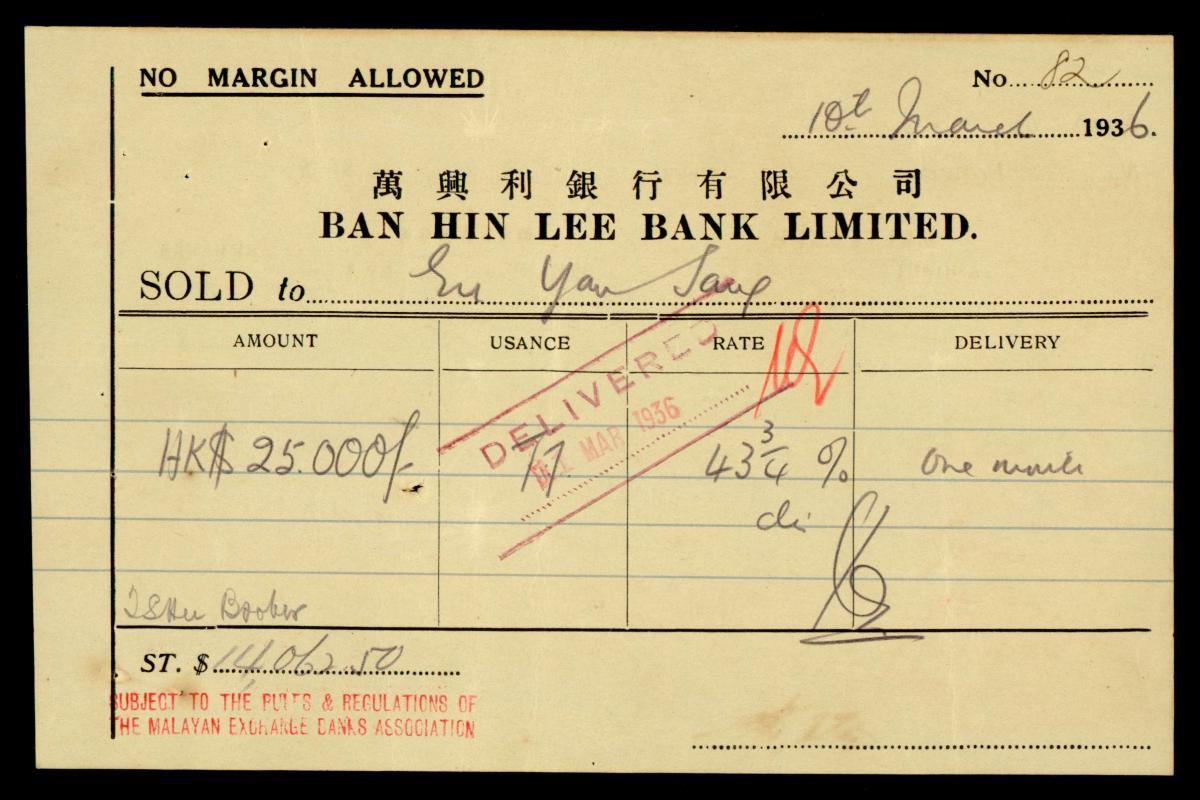 NO MARGIN ALLOWED
No. 82
10th March 1936.
萬興利銀行有限公司
BAN HIN LEE BANK LIMITED.
SOLD to Eu Yan Sang
AMOUNT USANCE RATE DELIVERY
DELIVERED
MAR 1936
HK$ 25.000/- TT. 43 3/4 % One month
dis
ST. $ 14,062.50
SUBJECT TO THE RULES & REGULATIONS OF
THE MALAYAN EXCHANGE BANKS ASSOCIATION